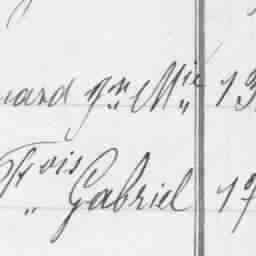 uard Jn Mie 13
Frois „ Gabriel 17